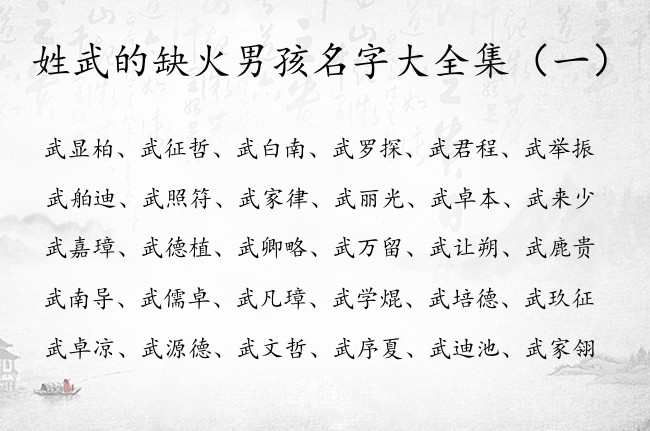 姓武的缺火男孩名字大全集（一）
武显柏、武征哲、武白南、武罗探、武君程、武举振
武舶迪、武照符、武家律、武丽光、武卓本、武来少
武嘉璋、武德植、武卿略、武万留、武让朔、武鹿贵
武南导、武儒卓、武凡璋、武学焜、武培德、武玖征
武卓凉、武源德、武文哲、武序夏、武迪池、武家翎